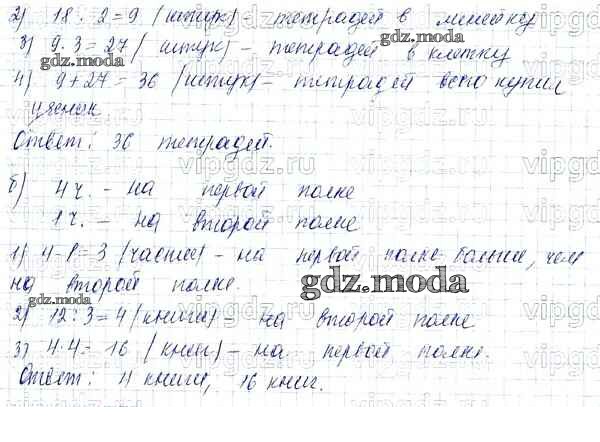 2) 18 : 2 = 9 (штук) - тетрадей в линейку
3) 9·3 = 27 (штук) - тетрадей в клетку
gdz.moda
4) 9+27 = 36 (штук) - тетрадей всего купил
ученик
Ответ: 36 тетрадей.
б) 4ч. - на первой полке
1ч. - на второй полке
1) 4-1=3 (части) - на первой полке больше, чем
на второй полке.
gdz.moda
gdz.moda
2) 12 : 3 = 4 (книги) на второй полке
3) 4·4 = 16 (книг) - на первой полке.
Ответ: 4 книги, 16 книг.
gdz.moda
vipgdz.ru